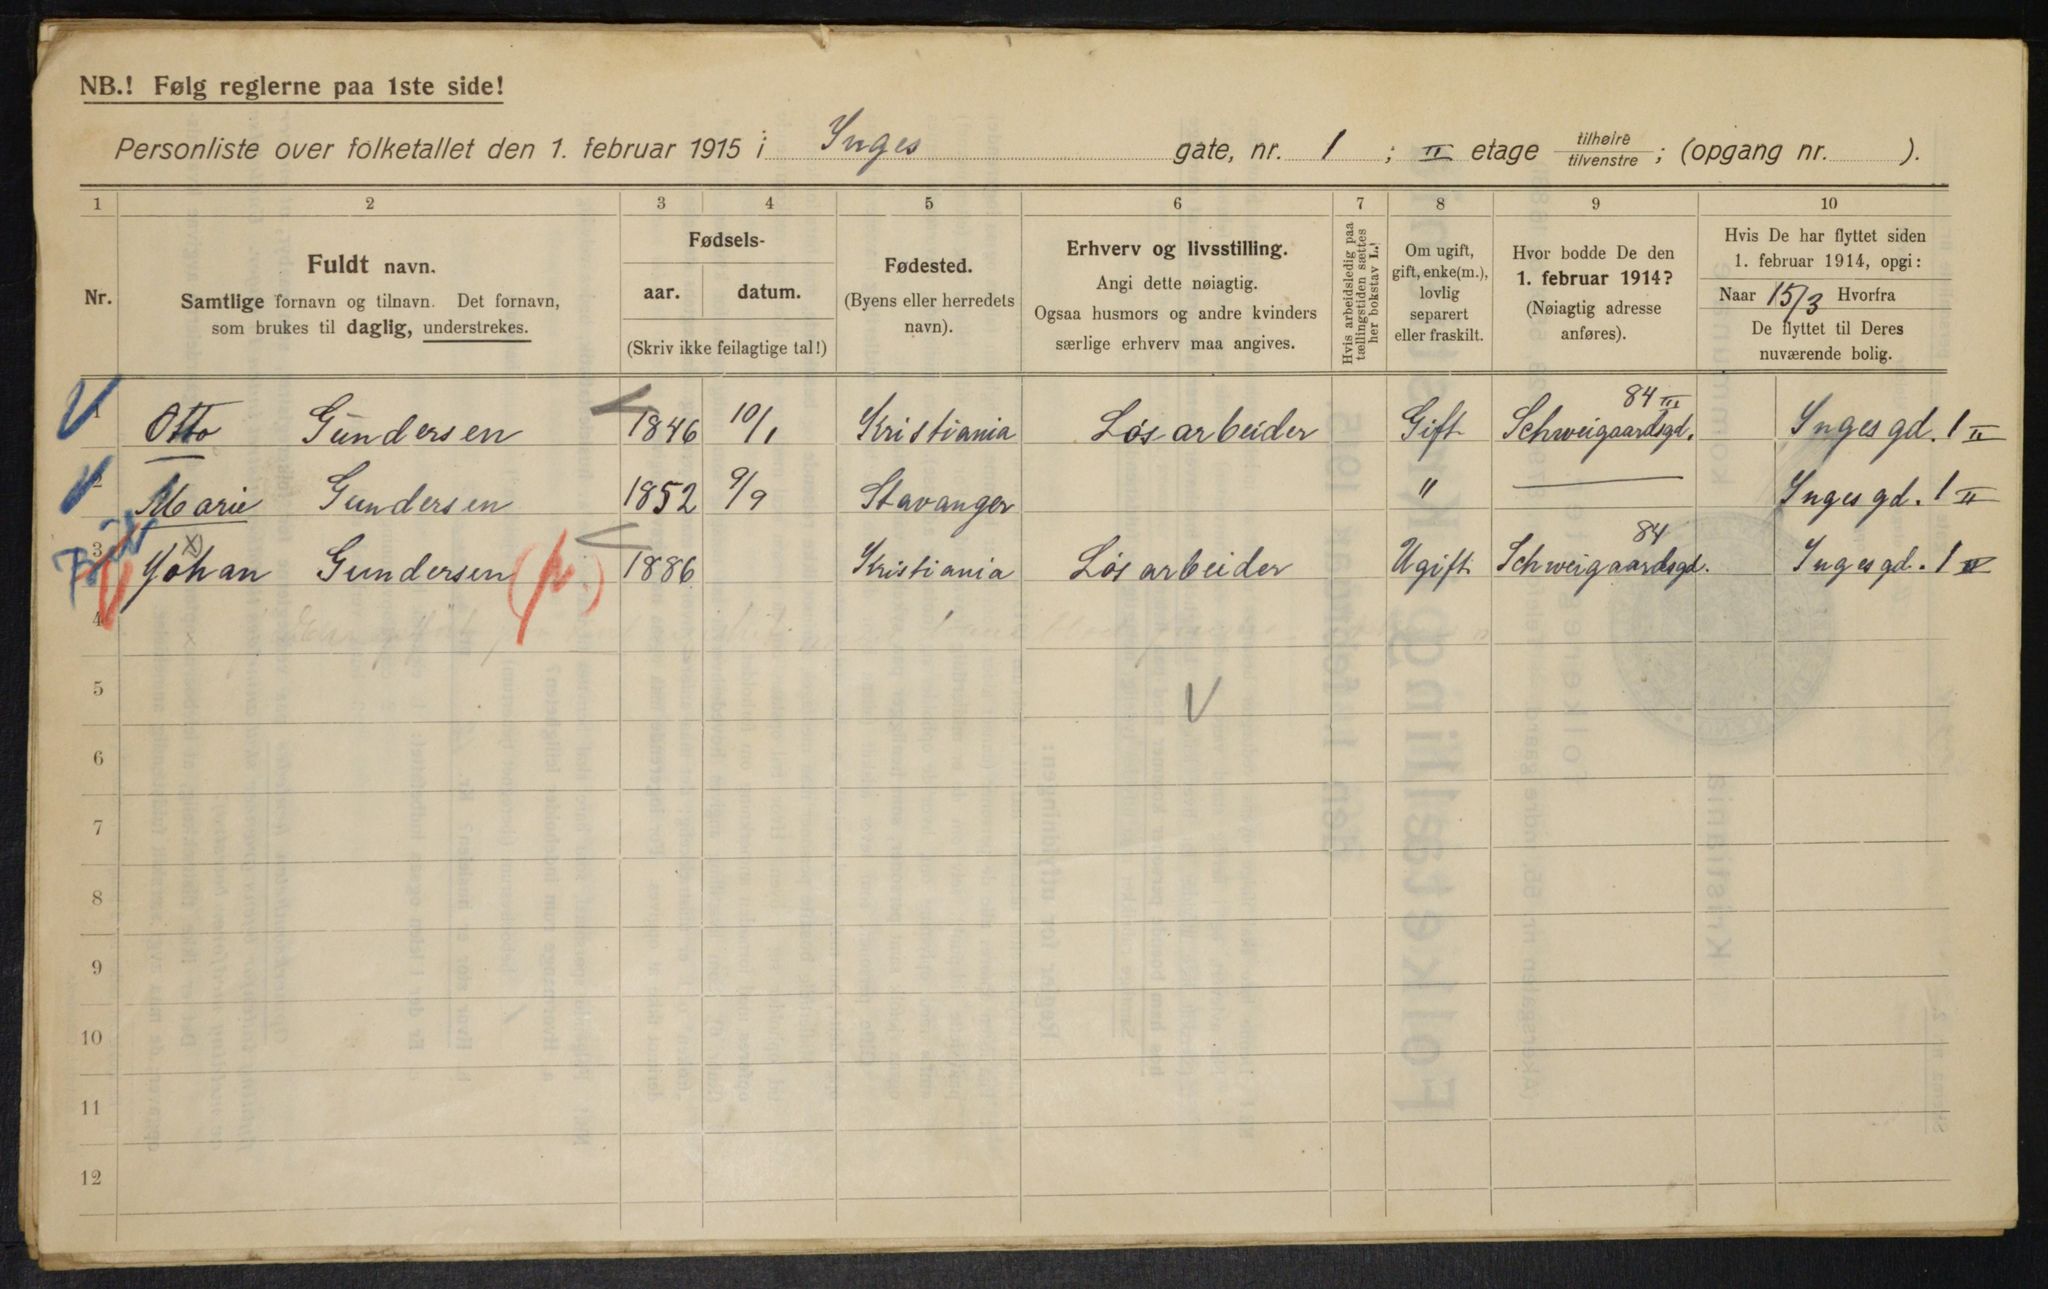 NB.! Følg reglerne paa 1ste side!
Personliste over folketallet den 1. februar 1915 i Inges gate, nr. 1 ; II etage tilhøire / tilvenstre ; (opgang nr. ).
1 2 3 4 5 6 7 8 9 10
Nr.
Fuldt navn.
Samtlige fornavn og tilnavn. Det fornavn,
som brukes til daglig, understrekes.
Fødsels-
aar. datum.
(Skriv ikke feilagtige tal!)
Fødested.
(Byens eller herredets
navn).
Erhverv og livsstilling.
Angi dette nøiagtig.
Ogsaa husmors og andre kvinders
særlige erhverv maa angives.
Hvis arbeidsledig paa
tællingstiden sættes
her bokstav L.!
Om ugift,
gift, enke(m.),
lovlig
separert
eller fraskilt.
Hvor bodde De den
1. februar 1914?
(Nøiagtig adresse
anføres).
Hvis De har flyttet siden
1. februar 1914, opgi:
Naar 15/3 Hvorfra
De flyttet til Deres
nuværende bolig.
1 Otto Gundersen 1846 10/1 Kristiania Løsarbeider Gift Schweigaardsgd. 84 III Inges gd. 1 II
2 Marie Gundersen 1852 9/9 Stavanger " — Inges gd. 1 II
3 Johan x) Gundersen 1886 Kristiania Løsarbeider Ugift Schweigaardsgd. 84 Inges gd. 1 II
4
5
6
7
8
9
10
11
12